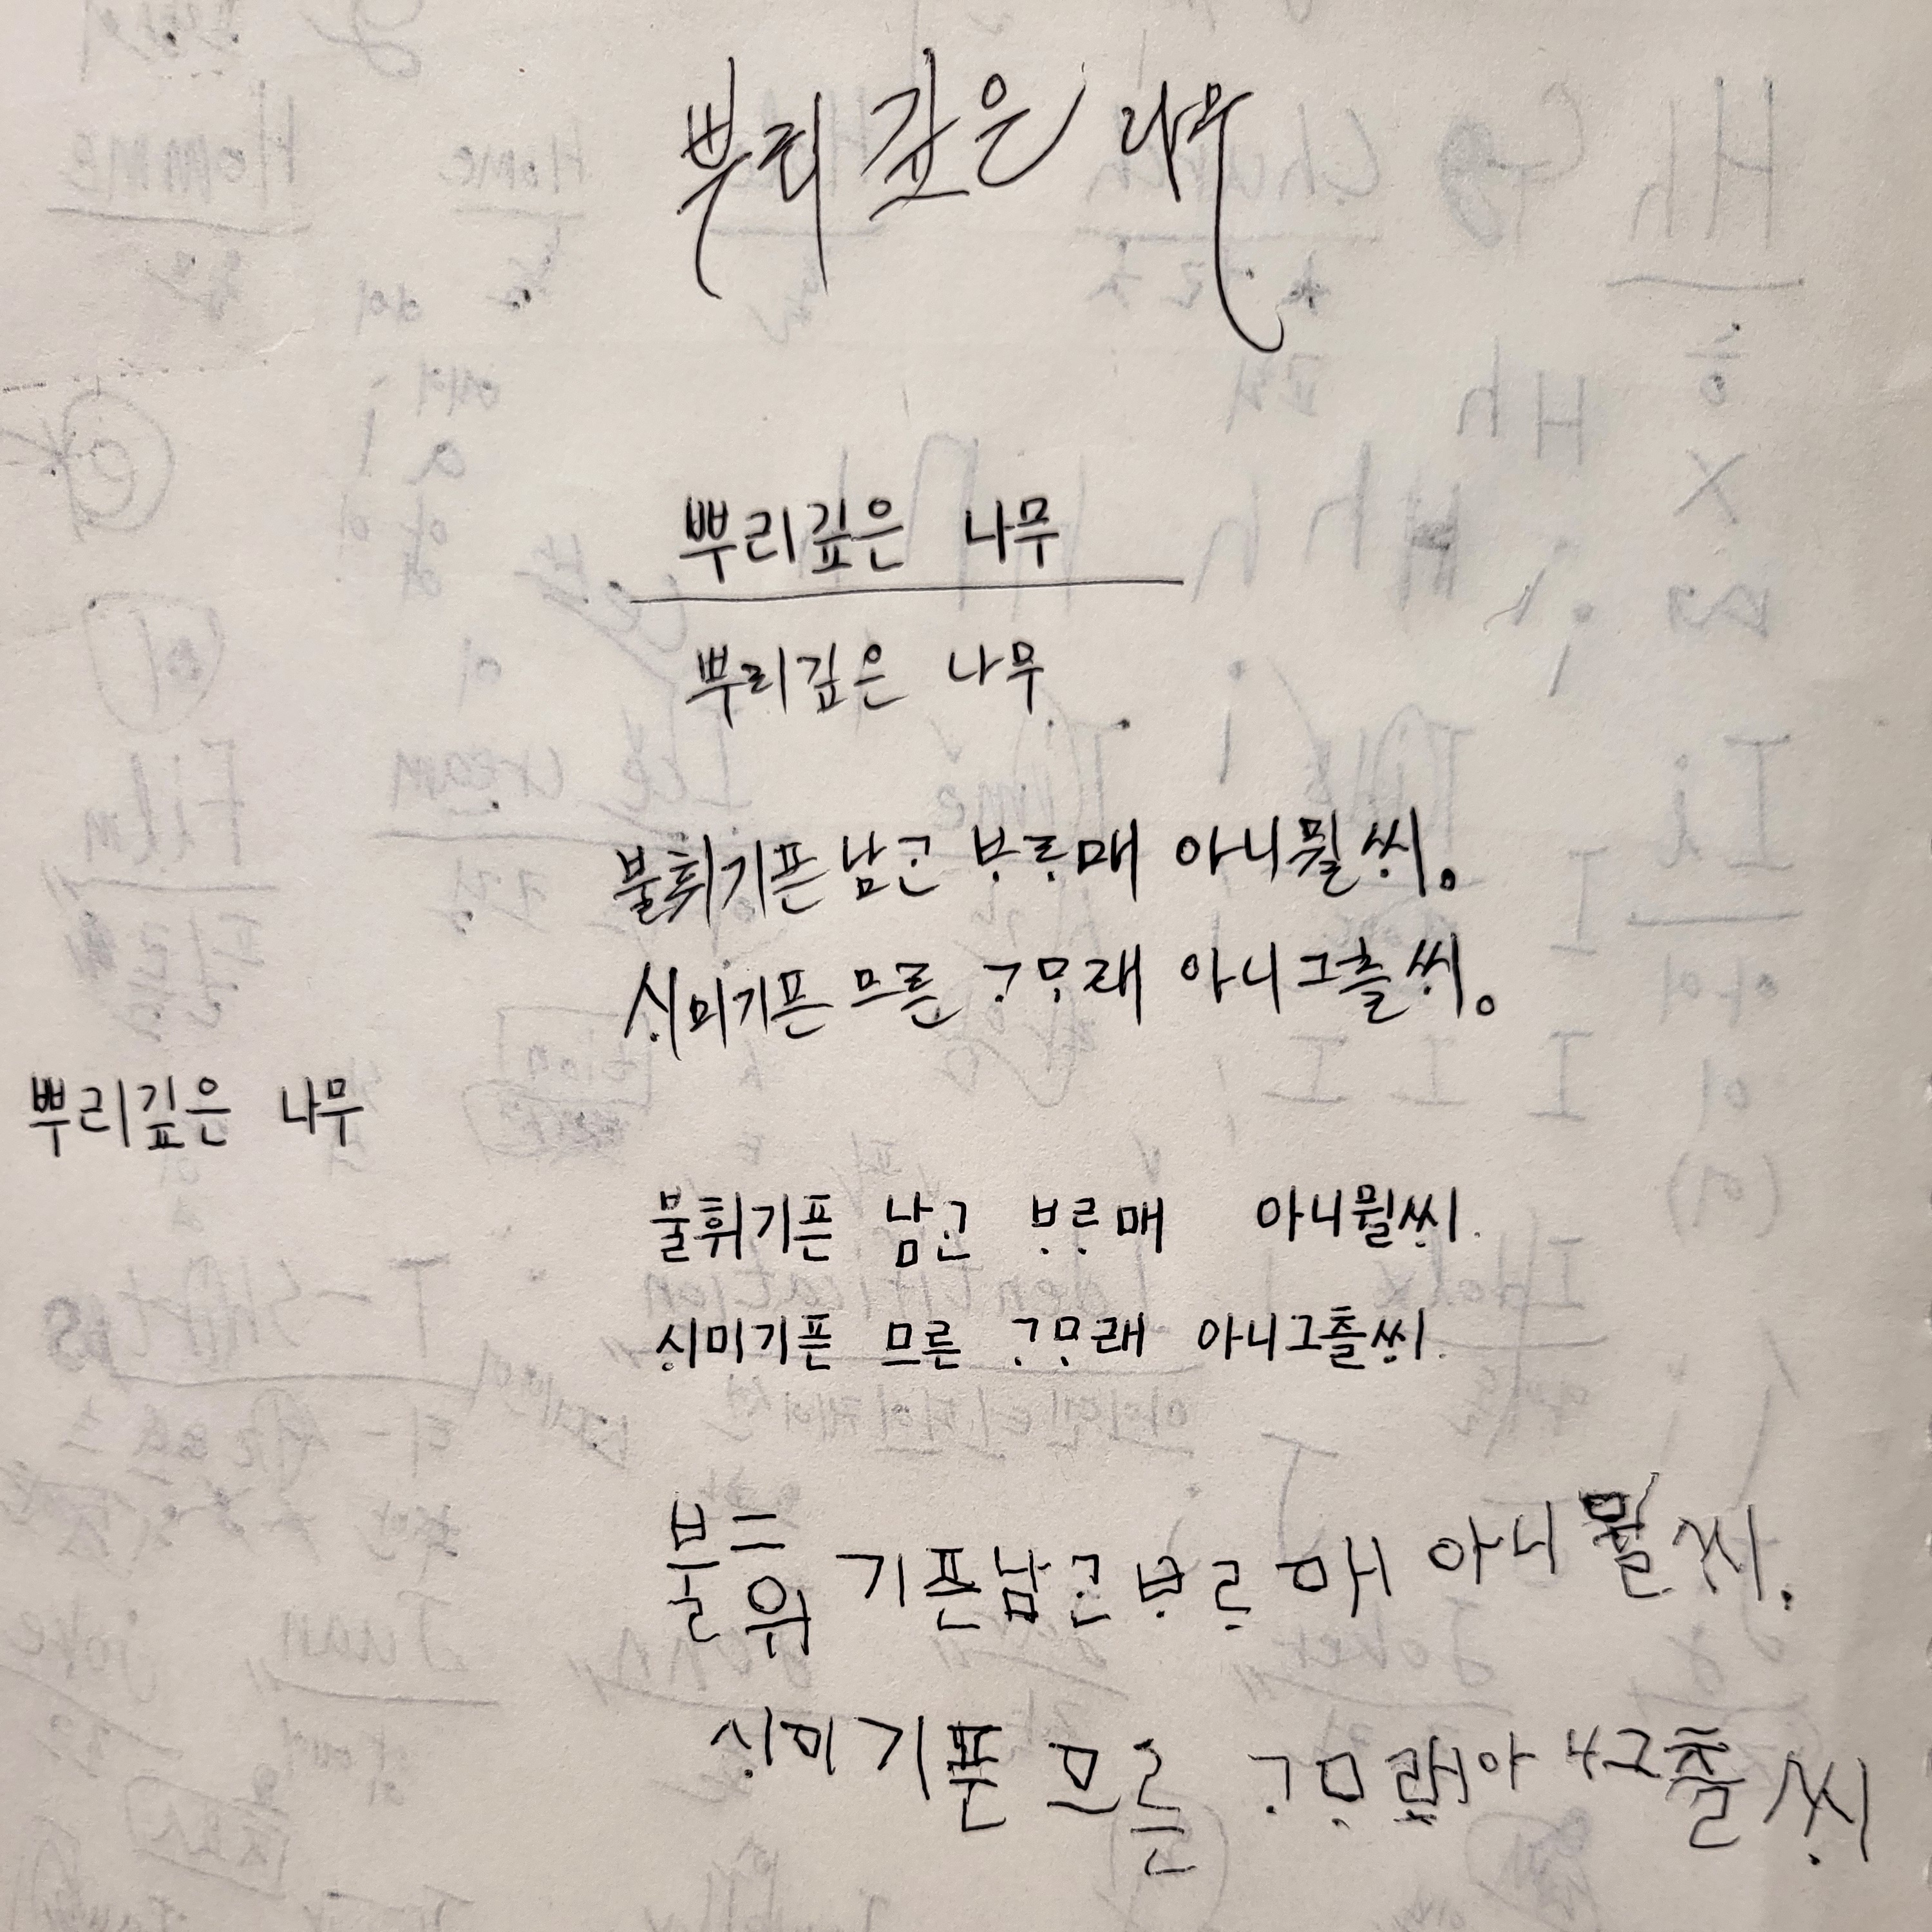 뿌리 깊은 나무
뿌리깊은 나무
뿌리깊은 나무
불휘기픈남ᄀᆞᆫ ᄇᆞᄅᆞ매 아니뮐ᄊᆡ。
ᄉᆡ미기픈 므른 ᄀᆞᄆᆞ래 아니그츨ᄊᆡ。
뿌리깊은 나무
불휘기픈 남ᄀᆞᆫ ᄇᆞᄅᆞ매 아니뮐ᄊᆡ.
ᄉᆡ미기픈 므른 ᄀᆞᄆᆞ래 아니그츨ᄊᆡ.
불휘 기픈남ᄀᆞᆫᄇᆞᄅᆞ매 아니뮐ᄊᆡ.
ᄉᆡ미기픈 므른 ᄀᆞᄆᆞ래아니그츨ᄊᆡ